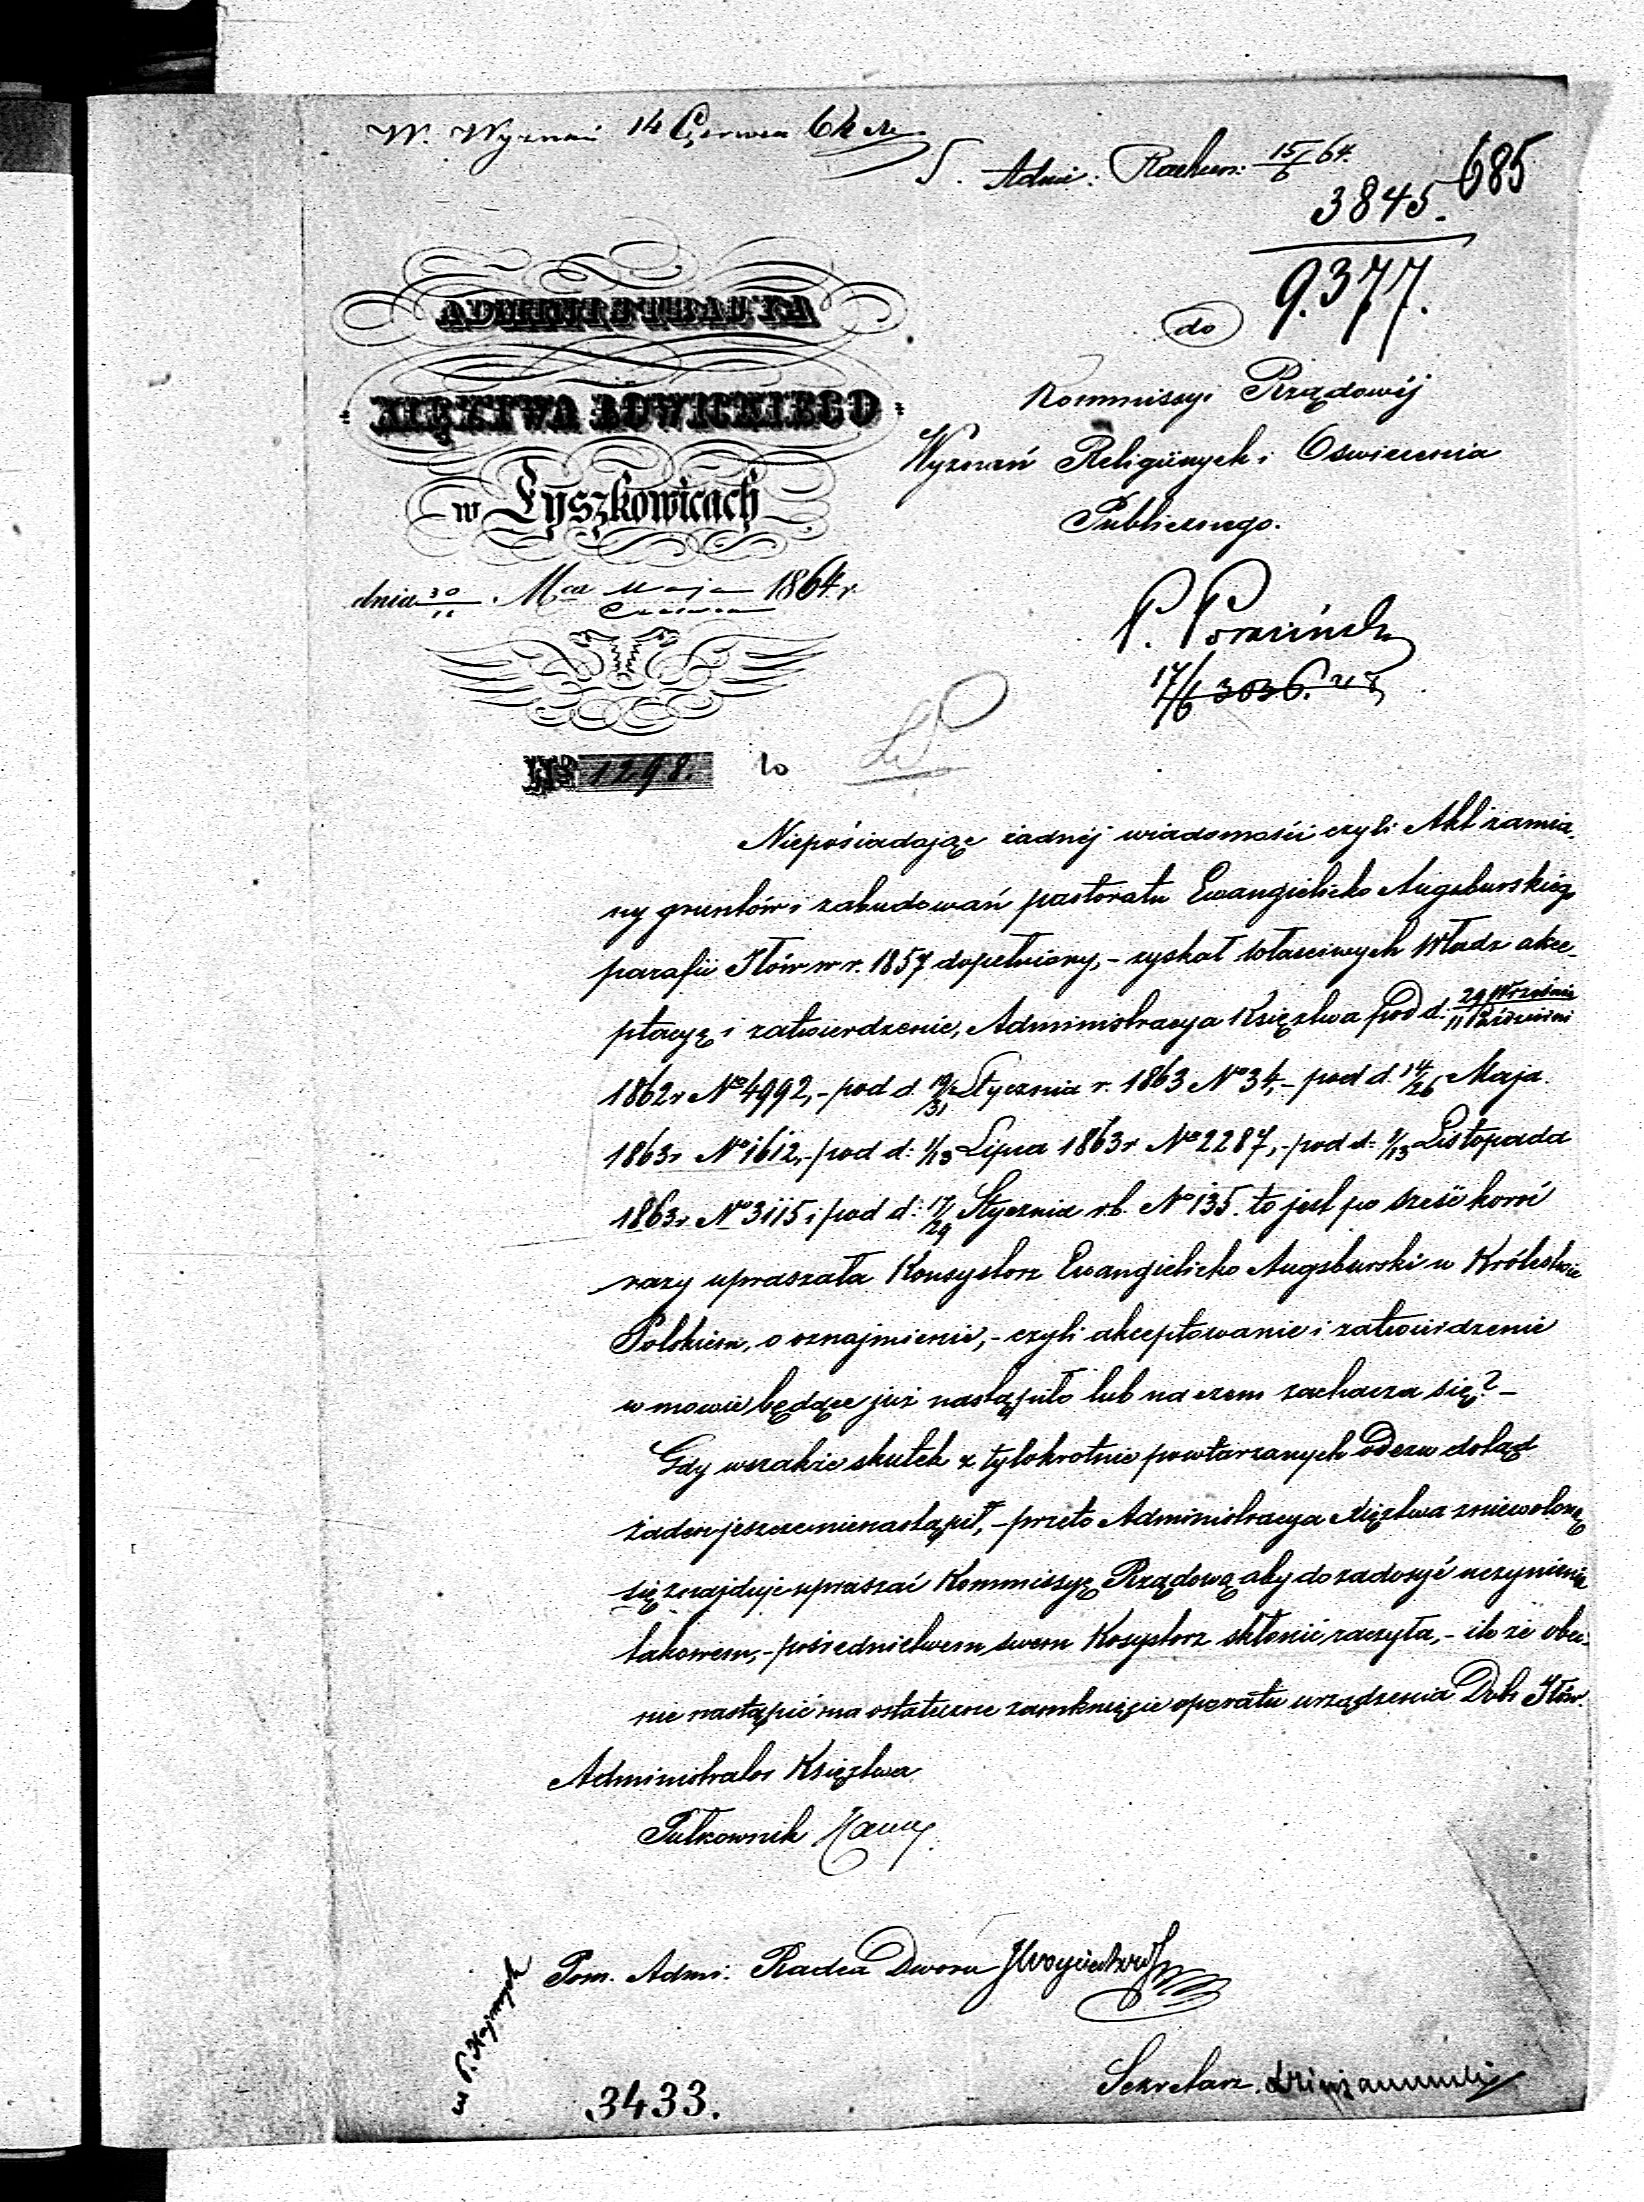 W. Wyznań 14 Czerwca 64
S. Adm: Rachun: 15/6 64.
685
3845.
9377.
ADMINISTRACYA
XIĘZTWA ŁOWICKIEGO
w Łyszkowicach
dnia 30/11 Mca Maja/Czerwca 1864 r
№ 1298.
do
Kommissyi Rządowéj
Wyznań Religijnych i Oswiecenia
Publicznego.
17/6 3036.
Nieposiadając żadnéj wiadomości czyli Akt zamia-
ny gruntów i zabudowań pastoratu Ewangielicko Augsburskiego
parafii Iłów w r. 1857 dopełniony, - zyskał właściwych Władz akce-
ptacyę i zatwierdzenie, Administracya Księztwa pod d. 29 Września/11 Października
1862 r No 4992, - pod d. 19/31 Stycznia r. 1863 No 34, - pod d. 14/26 Maja
1863 r No 1612, - pod d: 1/13 Lipca 1863 r No 2287, - pod d: 1/13 Listopada
1863 r. No 3115 i pod d: 17/29 Stycznia r.b. No 135. to jest po sześć kroć
razy upraszała Konsystorz Ewangielicko Augsburski w Królestwie
Polskiem, o oznajmienie, - czyli akceptowanie i zatwierdzenie
w mowie będące już nastąpiło lub na czem zachacza się? -
Gdy wszakże skutek z tylokrotnie powtarzanych odezw dotąd
żaden jeszcze nienastąpił, - przeto Administracya Xięztwa zniewoloną
się znajduje upraszać Kommissyę Rządową aby do zadosyć uczynienia
takowem, - pośrednictwem swem Kosystorz skłonić raczyła, - ile że obec-
nie nastąpić ma ostateczne zamknięcie operatu urządzenia Dóbr Iłów.
Administrator Księztwa
Pułkownik
Pom. Admi: Radca Dworu
Sekretarz
3433.